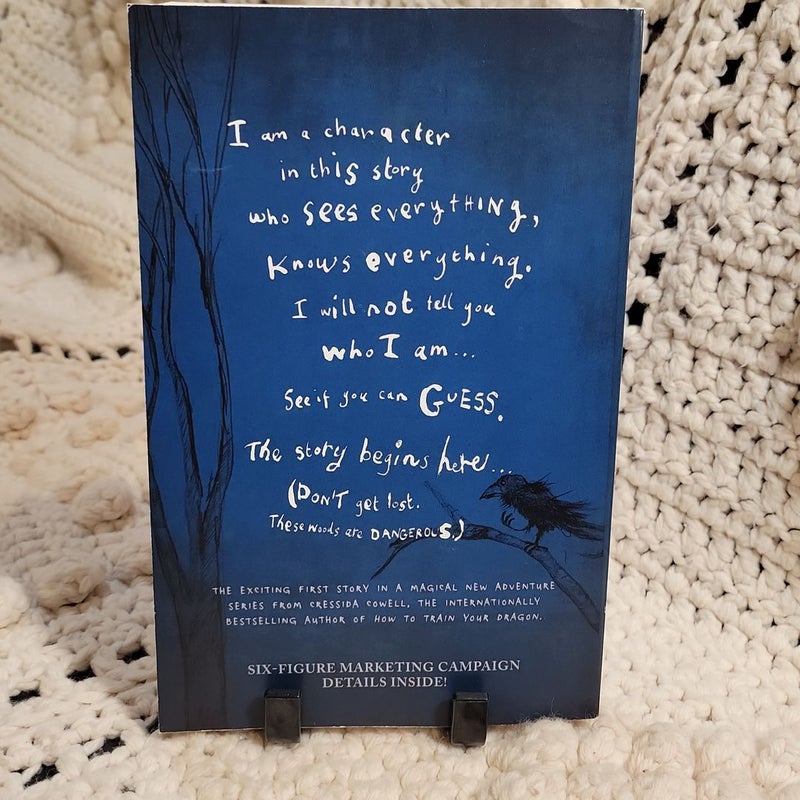 I am a character
in this story
who sees everytHING,
Knows everything.
I will not tell you
who I am...
See if you can GUESS.
The story begins here...
(DON'T get lost.
These woods are DANGEROUS.)
THE EXCITING FIRST STORY IN A MAGICAL NEW ADVENTURE
SERIES FROM CRESSIDA COWELL, THE INTERNATIONALLY
BESTSELLING AUTHOR OF HOW TO TRAIN YOUR DRAGON.
SIX-FIGURE MARKETING CAMPAIGN
DETAILS INSIDE!